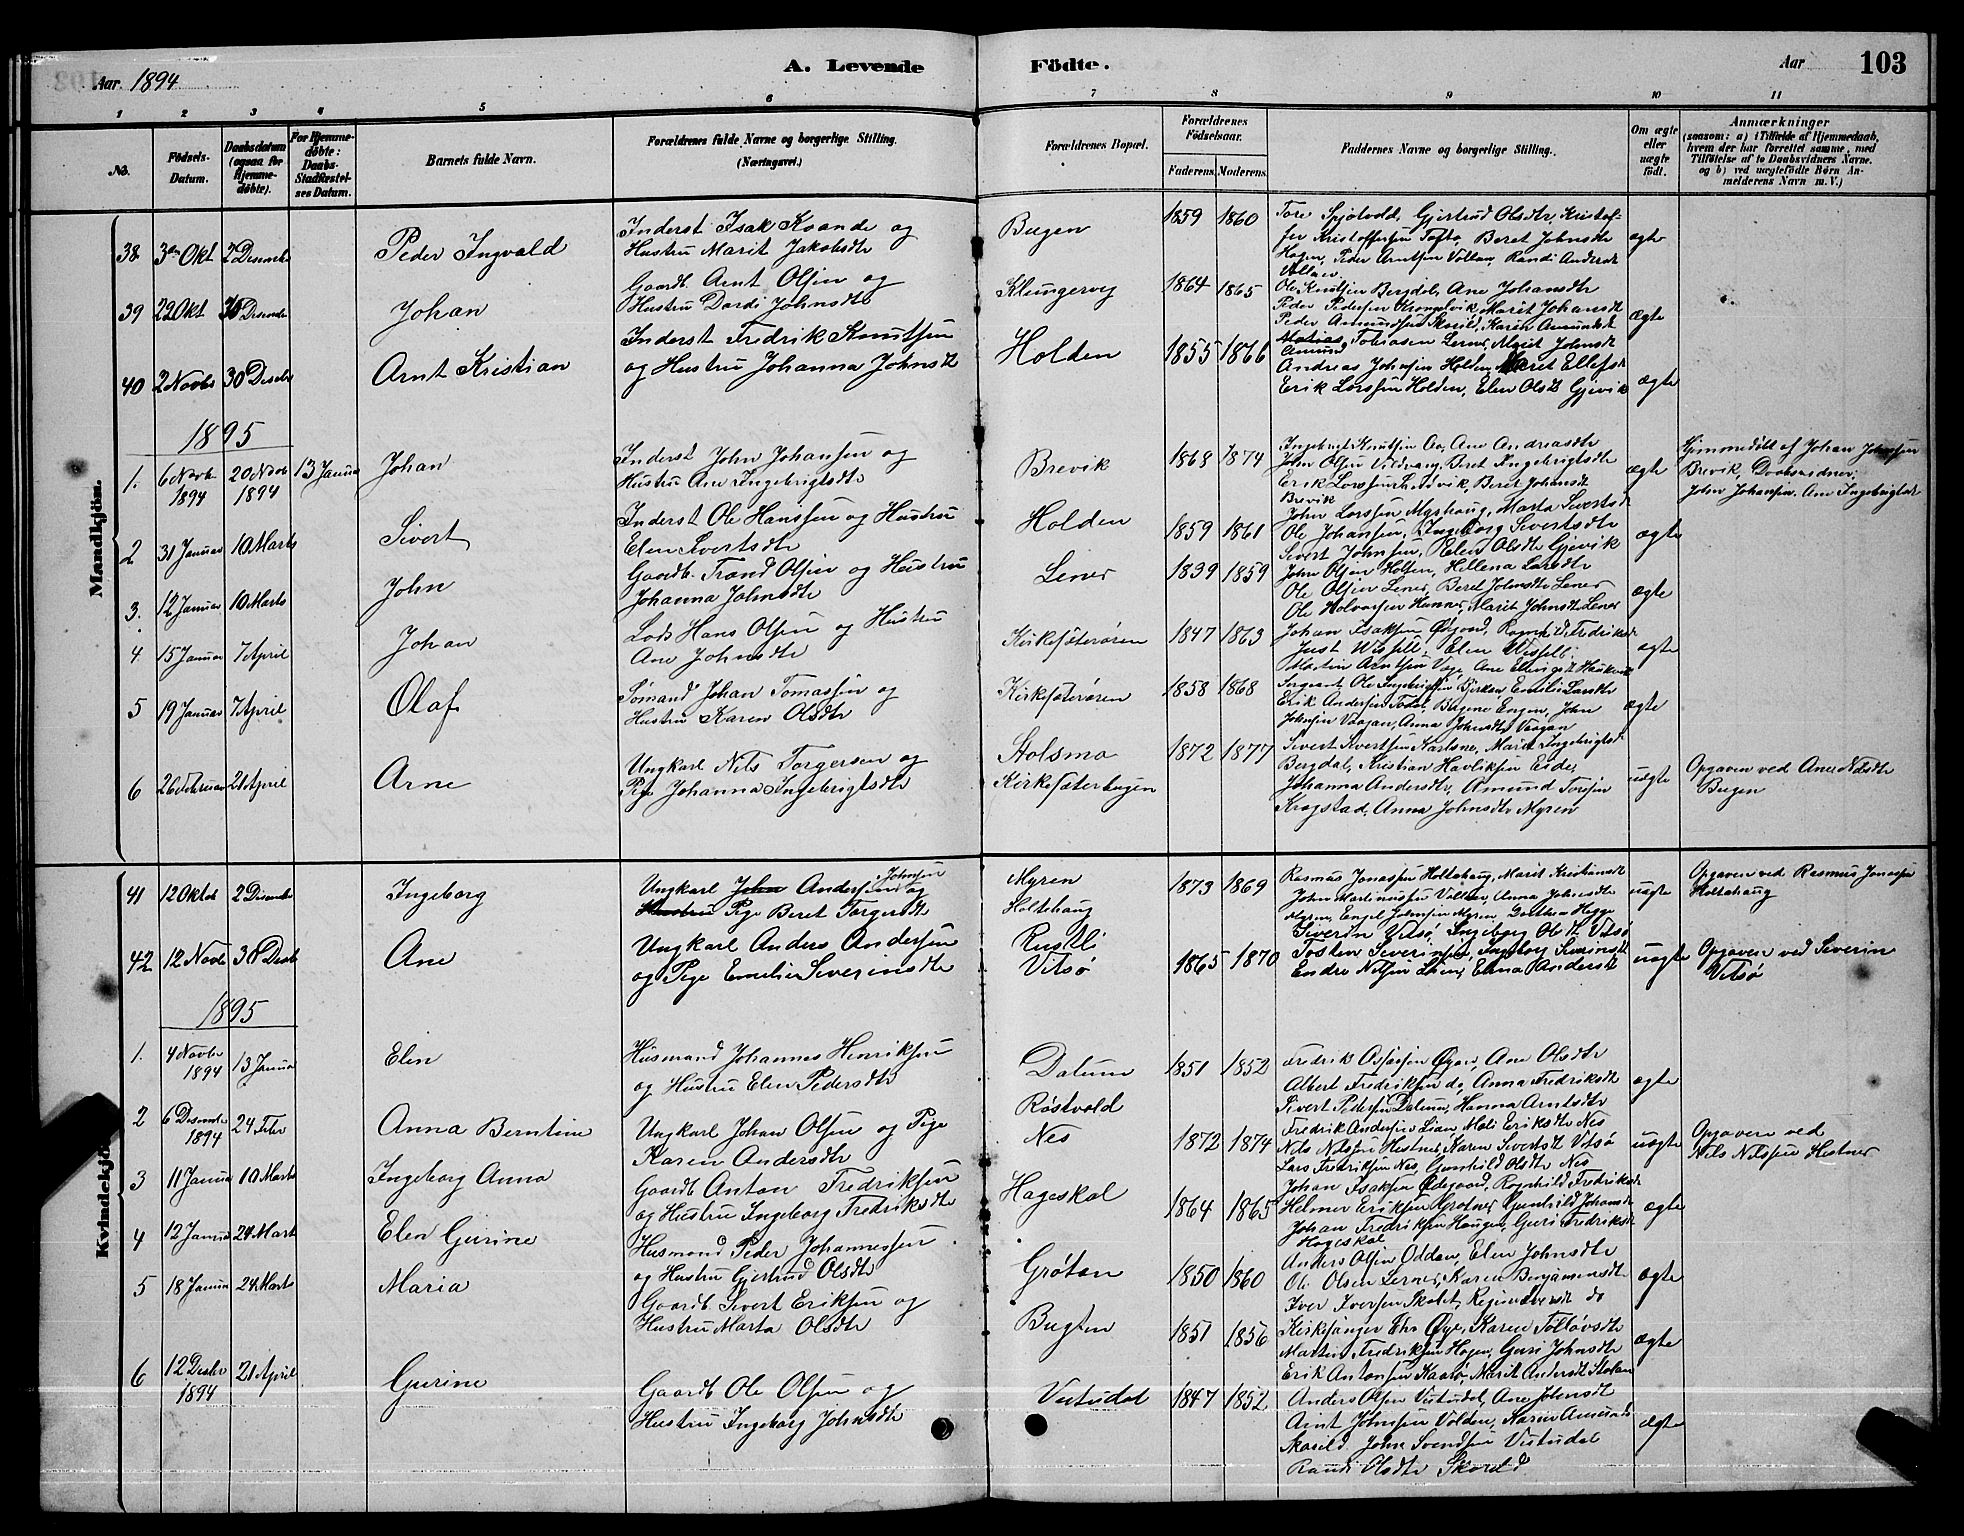 Aar 1894
A. Levende
Födte.
Aar
103
1 2 3 4 5 6 7 8 9 10 11
No.
Födsels-Datum.
Daabsdatum (ogsaa for Hjemme-döbte).
For Hjemme-döbte: Daabs-Stadfæstel-ses Datum.
Barnets fulde Navn.
Forældrenes fulde Navne og borgerlige Stilling. (Næringsvei.)
Forældrenes Bopæl.
Forældrenes Födselsaar.
Faderens. Moderens.
Faddernes Navne og borgerlige Stilling.
Om ægte eller uægte födt.
Anmærkninger
(saasom: a) i Tilfælde af Hjemmedaab, hvem der har forrettet samme, med Tilföielse af to Daabsvidners Navne. og b) ved uægtefödte Börn An-melderens Navn m. V.)
Mandkjön.
38 2 Desember Peder Ingvald
Inderst Isak Kvande og
Hustru Marit Jakobsdtr
Bugen 1859 1860
Tore Spjotvold, Gjertrud Olsdtr, Kristof-
fer Kristoffersen Tofte, Beret Johnsdtr
Hagen, Peder Arntsen Vollan, Randi Andersdt
Vollan
ægte
39 29 Okt Johan
Gaardb. Arnt Olsen og
Hustru Dordi Johnsdtr
Klungervig 1864 1865
Ole Knutsen Bergdal, Ane Johansdtr
Peder Pedersen Marit Johansdt
Peder Amundsen Karen Amundsdt
ægte
40 2 Novbr 30 Desbr Arnt Kristian
Inderst Fredrik Knutsen
og Hustru Johanna Johnsdt
Holden 1855 1866
Amund Tobiasen Lerner, Marit Johnsdt
Andreas Johnsen Holden, Maret Ellefsdt
Erik Larssen Holden, Elen Olsdt Gjevik
ægte
1895
1. 6 Novb 1894 20 Novb 1894 13 Januar Johan
Inderst John Johansen og
Hustru Ane Ingebrigtsdtr
Brevik 1868 1874
Ingebrigt Knutsen Aa, Ane Andreasdtr
John Olsen Beret Ingebrigtsdtr
Erik Larssen Beret Johnsdt
Brevik
ægte
Hjemmedöbt af Johan Johnsen
Brevik, Daabsvidner:
John Johansen, Ane Ingebrigtsdt
2 31 Januar 10 Marts Sivert
Inderst Ole Hanssen og Hustru
Elen Sivertsdtr
Holden 1859 1861
John Larssen Myrhaug, Marta Sivertsdt
Ole Johansen, Ingeborg Sivertsdtr
Sivert Johnsen, Elen Olsdtr Gjevik
ægte
3. 12 Januar 10 Marts John
Gaardb. Trond Olsen og Hustru
Johanna Johnsdtr
Lener 1839 1859
John Olsen Holten, Hellena Larsdtr
Ole Olsen Lener, Beret Johnsdtr Lener
Ole Halvorsen Hamner, Marit Johnsdt Lener
ægte
4 15 Januar 7 April Johan
Lods Hans Olsen og Hustru
Ane Johnsdtr
Kirkesæterøren 1847 1863
Johan Isaksen Ødegård, Ragnhild Fredriksdt
Just Wessell, Elen Wessell
Martin Arntsen Vage, Ane
ægte
5 19 Januar 7 April Olaf
Sömand Johan Tomassen og
Hustru Karen Olsdtr
Kirkesæterøren 1858 1868
Sergeant Ole Ingebrigtsen Bjerkan, Emilie Larsdtr
Erik Andersen Todal, Engen, John
Johnsen Vaagan, Anna Johnsdtr Vaagan
ægte
6 26 Februar 21 April Arne
Ungkarl Nils Torgersen og
Pige Johanna Ingebrigtsdtr
Stolsmo
Kirkesæterbugen 1872 1877
Sivert Sivertsen Karlsne, Marit Ingebrigtsdt
Bergdal, Kristian Havliksen Eider
Johanna Andersdtr, Amund Toresen
Krogstad, Anna Johnsdtr Myren
uægte
Opgaven ved Ane Nilsdtr
Bugen
Kvindekjön.
41 12 Oktbr 2 Desember Ingeborg
Ungkarl John Andersen Johnsen og
Hustru Pige Beret Torgersdtr
Myren
Holtehaug 1873 1869
Rasmus Jonassen Holtehaug, Marit Kristiansdt
John Martinussen Vollan, Anna Johnsdtr
Myren, Engel Johnsen Myren, Dorthea Hegge
uægte
Opgaven ved Rasmus Jonassen
Holtehaug
42 12 Novbr 30 Desb Ane
Ungkarl Anders Andersen
og Pige Emelie Severinsdtr
Rustli
Vitsø 1865 1870
Severin Vitsø, Ingeborg Olsdt Vitsø
Tosten Severinsen, Ingeborg Severinsdt
Endre Nilsen Lien, Elena Andersdt
uægte
Opgaven ved Severin
Vitsø
1895
1. 4 Novbr 1894 13 Januar Elen
Husmand Johannes Henriksen
og Hustru Elen Pedersdtr
Dalum 1851 1852
Fredrik Assersen Øyen, Ane Olsdtr
Albert Fredriksen do, Anna Fredriksdt
Sivert Pedersen Dalum, Hanna Arntsdtr
ægte
2 6 Desember 1894 24 Febr Anna Berntine
Ungkarl Johan Olsen og Pige
Karen Andersdtr
Røstvold
Nes 1872 1874
Fredrik Andersen Lian, Mali Eriksdtr Nes
Nils Nilssen Hestnes, Karen Sivertsdt Vitsø
Lars Fredriksen Nes, Gunhild Olsdtr Nes
uægte
Opgaven ved
Nils Nilssen Hestnes
3 11 Januar 10 Marts Ingeborg Anna
Gaardb Anton Fredriksen
og Hustru Ingeborg Fredriksdtr
Hageskal 1864 1865
Johan Isaksen Ødegaard, Ragnhild Fredriksdt
Helmer Eriksen Gunhild Johansdt
Johan Fredriksen Haugen, Guri Fredriksdt
Hageskal
ægte
4 12 Januar 24 Mart Elen Gurine
Husmand Peder Johannessen
og Hustru Gjertrud Olsdtr
Grøtan 1850 1860
Anders Olsen Oddan, Elen Johnsdtr
Ole Olsen Lerner, Karen Benjaminsdt
Iver Iversen Skalet, do
ægte
5 18 Januar 24 Marts Maria
Gaardb. Sivert Eriksen og
Hustru Marta Olsdtr
Bugten 1851 1856
Kirkesanger Chr Øye, Karen Tolløvsdtr
Martin Fredriksen Hagen, Guri Johnsdtr
Erik Antonsen Kaalø, Marit Andersdt Stolan
ægte
6 12 Desbr 1894 21 April Gurine
Gaardb Ole Olsen og
Hustru Ingeborg Johnsdtr
Vestudal 1847 1852
Anders Olsen Vestudal, Ane Johnsdt
Arnt Johnsen Volden, Karen Amunds
John Svendsen Vestudal
Randi Olsdtr
ægte